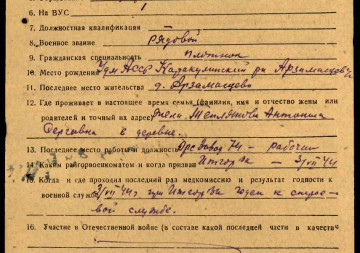 6. На ВУС 1
7. Должностная квалификация
8. Военное звание рядовой
9. Гражданская специальность плотник
10. Место рождения Удм АССР Каракулинский р-н
11. Последнее место жительства д. Арзамасцево
12. Где проживает в настоящее время семья (фамилия, имя и отчество жены или
родителей и точный их адрес) Антонина
Сергеевна в деревне.
13. Последнее место работы и должность завод 74 – рабочий
14. Каким райгорвоенкоматом и когда призван
15. Когда и где проходил раз медкомиссию и результат годности к
военной службе годен к строе-
вой службе.
16. Участие в Отечественной войне (в составе какой последней части в качестве